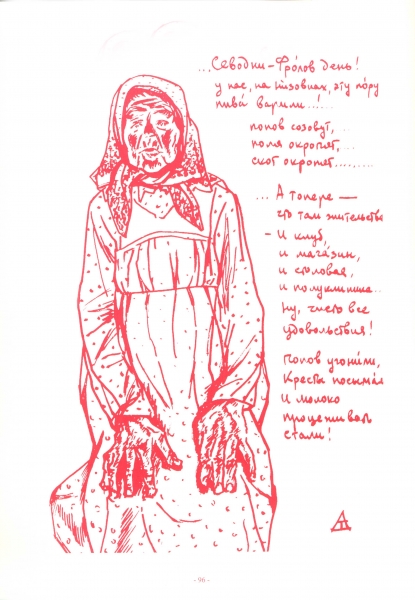 ...Севодни-Фро́лов день!
у нас, на низовках, э́ту по́ру
пива́ варили...!...
попов созовут,...
поля окропят,...
скот окропят.........
...А топере —
что там жительства
- И клуб,
и мага́зин,
и столовая,
и полуклиника...
Ну, чисто все
удовольствия!
Попов угонили,
Кресты посымал
И молоко
процеживать
стали!
- 96 -